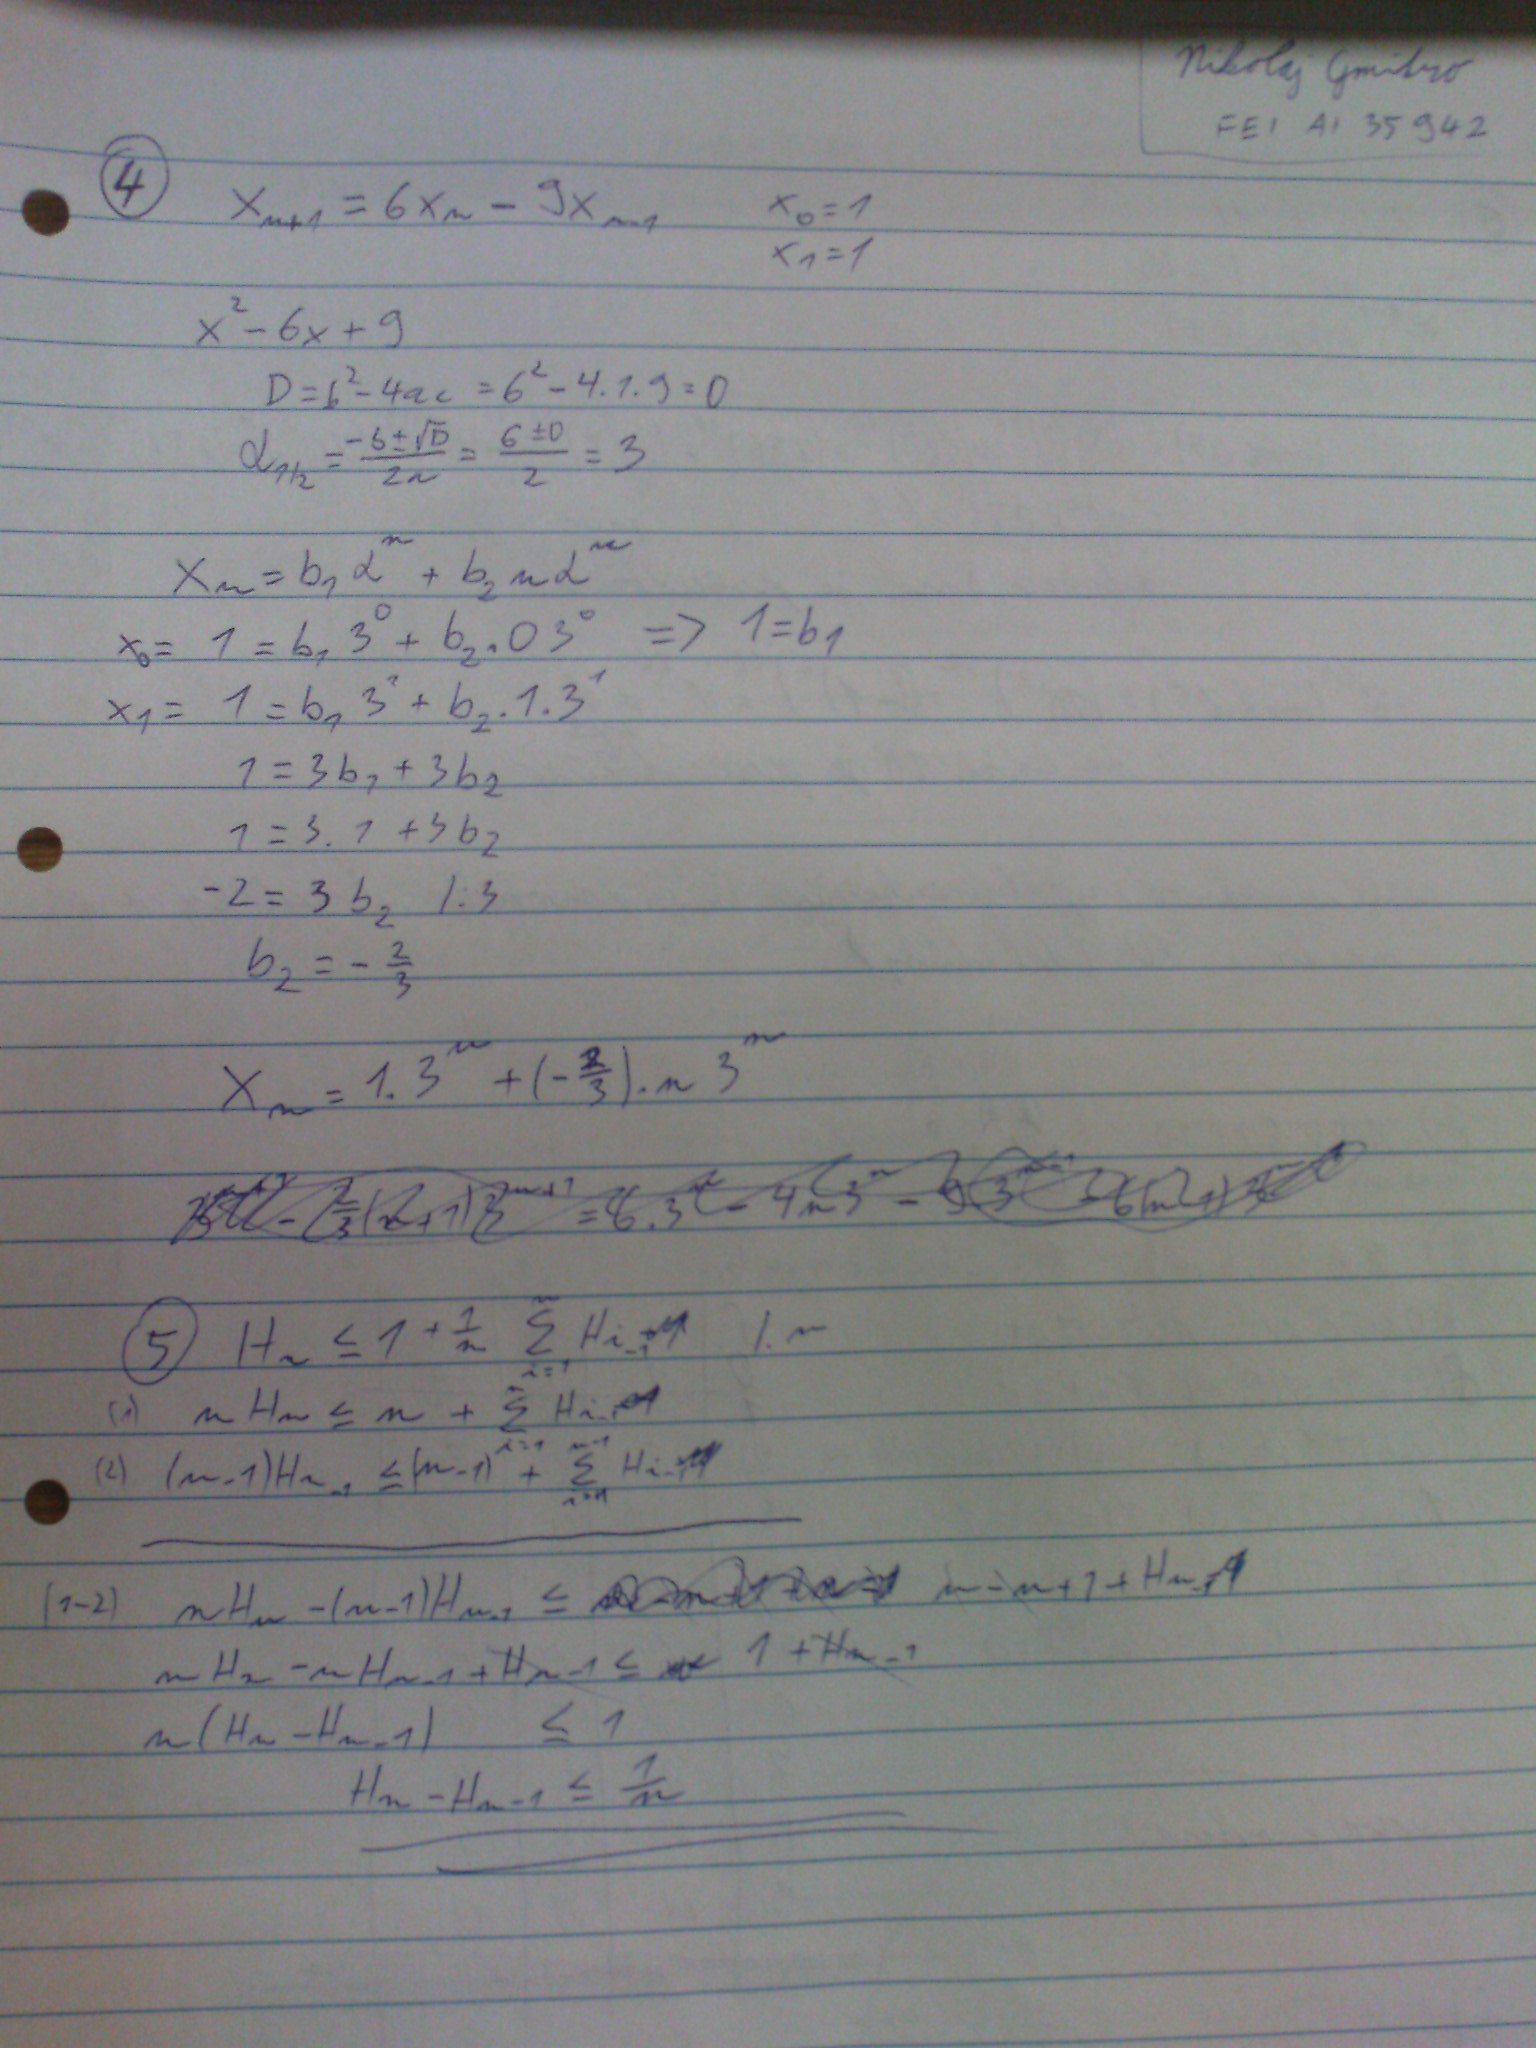 Nikolaj Gmitro
FEI AI 35942
4
x_{n+1} = 6x_n - 9x_{n-1}    x_0 = 1
x_1 = 1
x² - 6x + 9
D = b² - 4ac = 6² - 4.1.9 = 0
α_{1/2} = \frac{-b ± √D}{2a} = \frac{6 ± 0}{2} = 3
x_n = b_1 α^n + b_2 n α^n
x_0 = 1 = b_1 3^0 + b_2 . 0 3^0 => 1 = b_1
x_1 = 1 = b_1 3^1 + b_2 . 1 . 3^1
1 = 3b_1 + 3b_2
1 = 3 . 1 + 3b_2
-2 = 3 b_2 /:3
b_2 = - \frac{2}{3}
x_n = 1 . 3^n + (-\frac{2}{3}) . n 3^n
5 H_n ≤ 1 + \frac{1}{n} \sum_{i=1}^{n} H_{i-1} /. n
(1) n H_n ≤ n + \sum_{i=1}^{n} H_{i-1}
(2) (n-1)H_{n-1} ≤ (n-1) + \sum_{i=1}^{n-1} H_{i-1}
(1-2) nH_n - (n-1)H_{n-1} ≤ n - n + 1 + H_{n-1}
nH_n - nH_{n-1} + H_{n-1} ≤ 1 + H_{n-1}
n(H_n - H_{n-1}) ≤ 1
H_n - H_{n-1} ≤ \frac{1}{n}